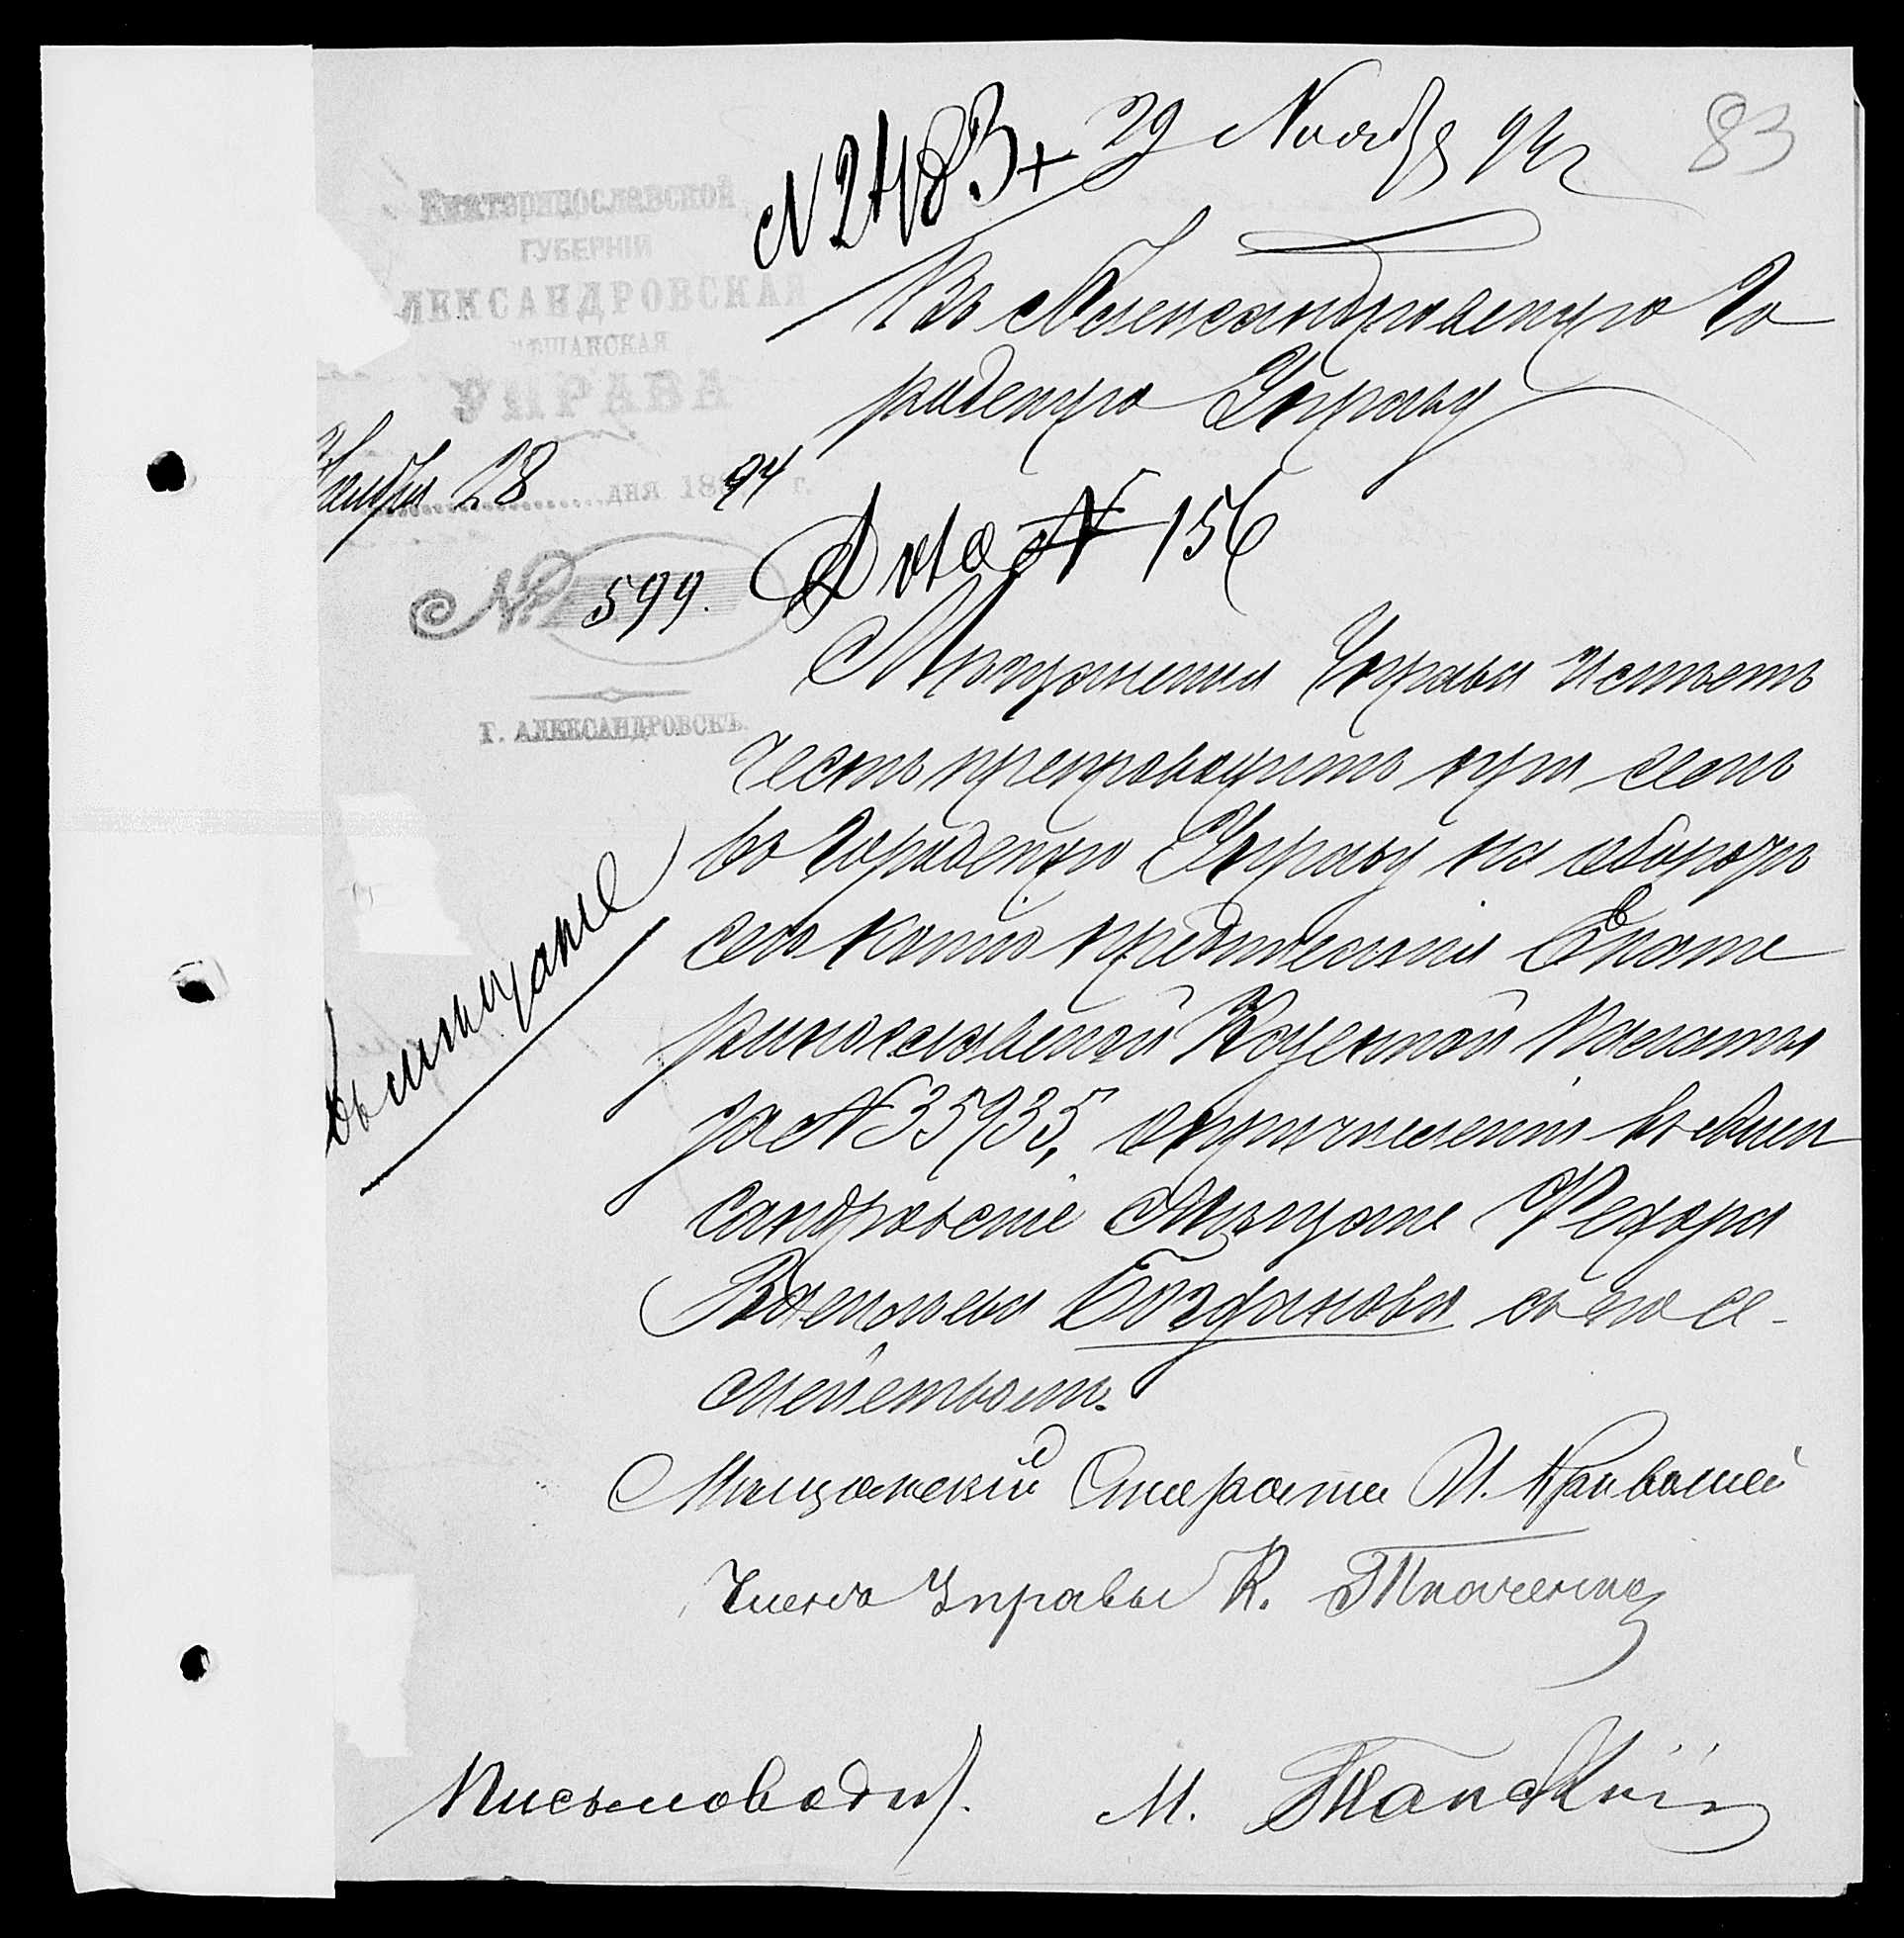 83
N 2483 + 29 Ноября 94 г
Екатеринославской
ГУБЕРНІИ
ЛЕКСАНДРОВСКАЯ
ѢЩАНСКАЯ
УПРАВА
Ноября 28 дня 1894 г.
№ 599.
Г. АЛЕКСАНДРОВСКЪ.
Въ Александровскую Го
родскую Управу
Дѣло N 156
Мѣщанская Управа имѣетъ
честь препроводить при семъ
въ Городскую Управу на оборотѣ
сего копію предписанія Екате
ринославской Казенной Палаты
за N 35935, о причисленіи въ Алек
сандровскіе Мѣщане Федора
Васильева Богданова съ его се-
мействомъ.
въ мѣщане
Мѣщанскій Староста И.
Членъ Управы К. Ткаченко
Письмовод. М.